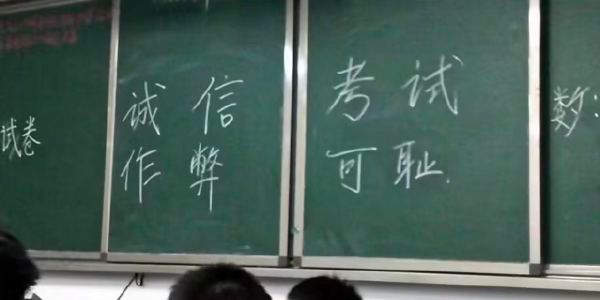 试卷
诚信 考试
作弊 可耻.
数: